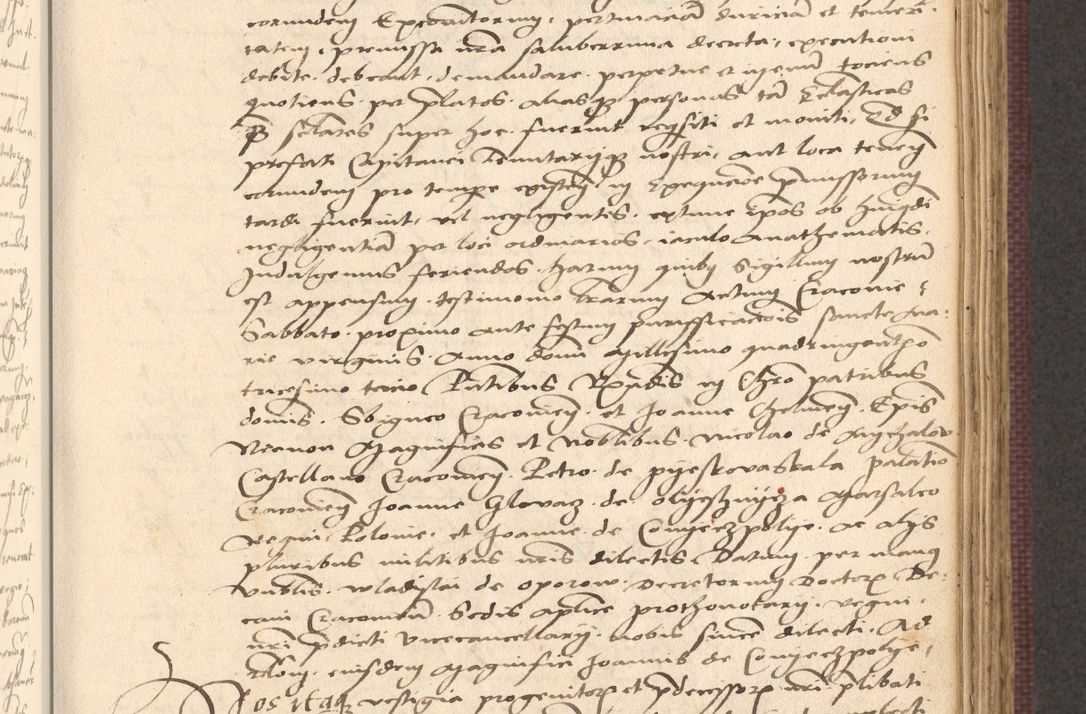 eorundem Expeditorum, pertinaciam duriciam et temeri-
tatem, premissa nostra saluberrima decreta, executioni
debite debeant demandare perpetue et inperium tociens
quotiens per prelatos aliasque personas tam Ecclesiasticas
quam seculares super hoc fuerint requisiti et moniti, Et si
prefati Capitanei Tenutarijque nostri, aut loca tenentes
eorundem pro tempore existentes in exequucione premissorum
tardi fuerint, vel negligentes, extunc ipsos ob huiusmodi
negligentiam per loci ordinarios, iaculo Anathematis,
Indulgemus feriendos. Harum quibus Sigillum nostrum
est appensum testimonio literarum Actum Cracouie
Sabbato proximo ante festum purifficacionis sancte Ma-
rie virginis Anno domini Millesimo quadringentesimo
tricesimo tercio Presentibus Reuerendis in Christo patribus
dominis Sbigneo Cracouien. et Joanne Chelmen. Episcopis
Necnon Magnificis et Nobilibus Nicolao de Mychalow
Castellano Cracouien. Petro de pyeskovaskala Palatino
Cracouien. Joanne Glovacz de Olyeschnycza Marsalco
Regni Polonie, et Joanne de Conyeczpolye, ac alijs
pluribus militibus nostris dilectis Datum per manus
Venerabilis Wladislai de Oporow Decretorum Doctoris De-
cani Cracouien. Sedis Apostolice prothonotarij, Regni
nostri predicti Vicecancellarij nobis sincere dilecti. Ad
relacionem eiusdem Magnifici Joannis de Conyeczpolye,
Nos itaque vestigia progenitorum et predecessorum nostrorum prelibati